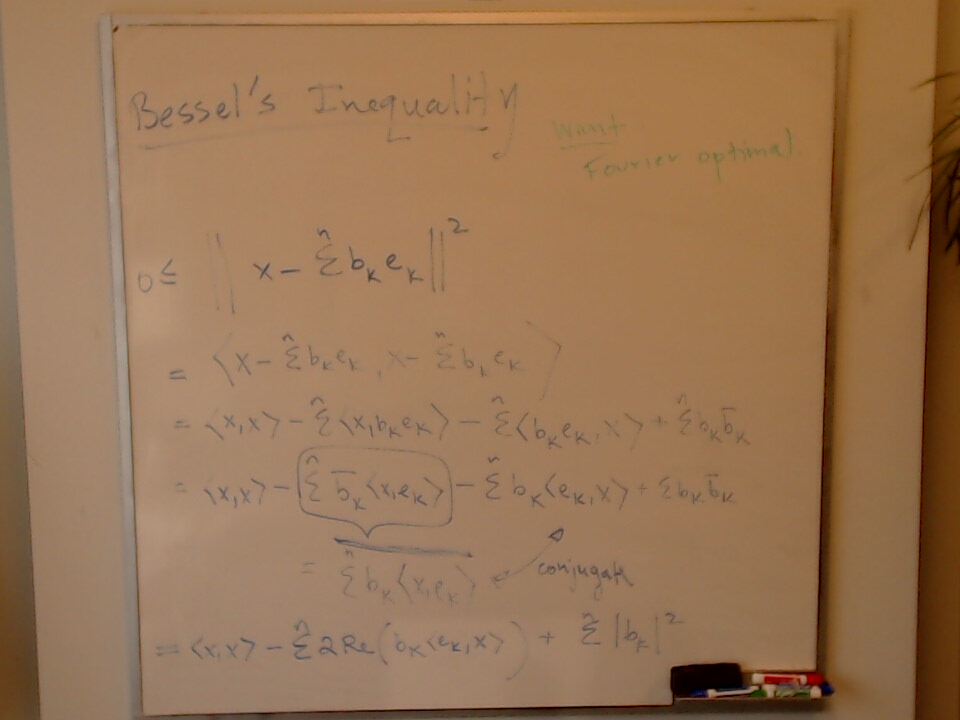 Bessel's Inequality
Want
Fourier optimal.
0 ≤ || x - Σⁿ b_k e_k ||²
= ⟨x - Σⁿ b_k e_k, x - Σⁿ b_k e_k⟩
= ⟨x,x⟩ - Σⁿ⟨x, b_k e_k⟩ - Σⁿ⟨b_k e_k, x⟩ + Σⁿ b_k b̄_k
= ⟨x,x⟩ - Σⁿ b̄_k⟨x,e_k⟩ - Σⁿ b_k⟨e_k,x⟩ + Σ b_k b̄_k
= Σⁿ b_k⟨x,e_k⟩ conjugate
= ⟨x,x⟩ - Σⁿ 2Re(b_k⟨e_k,x⟩) + Σⁿ |b_k|²